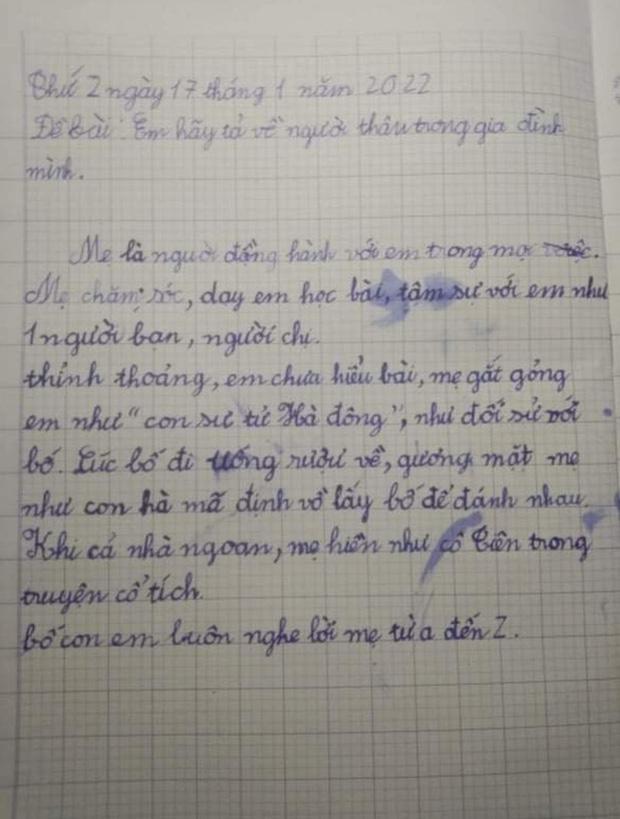 Thứ 2 ngày 17 tháng 1 năm 2022
Đề bài: Em hãy tả về người thân trong gia đình
mình.
Mẹ là người đồng hành với em trong mọi việc.
Mẹ chăm sóc, dạy em học bài, tâm sự với em như
1 người bạn, người chị.
thỉnh thoảng, em chưa hiểu bài, mẹ gắt gỏng
em như "con sư tử Hà đông", như đối sử với
bố. Lúc bố đi uống rượu về, gương mặt mẹ
như con hà mã định vồ lấy bố để đánh nhau.
Khi cả nhà ngoan, mẹ hiền như cô Tiên trong
truyện cổ tích.
bố con em luôn nghe lời mẹ từ a đến Z.